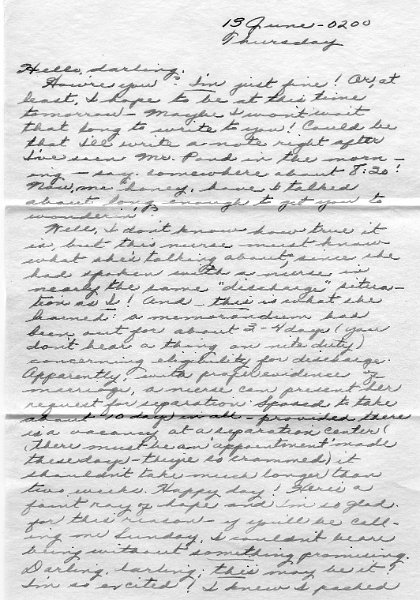 13 June - 0200
Thursday
Hello, darling,
How're you - I'm just fine! Or, at
least, I hope to be at this time
tomorrow - Maybe I won't wait
that long to write to you! Could be
that I'll write a note right after
I've seen Mr. Pond in the morn-
ing - say, somewhere about 8:20?
Now, me honey, have I talked
about long enough to get you to
wonderin'
Well, I don't know how true it
is, but this nurse must know
what she's talking about, since she
had spoken with a nurse in
nearly the same "discharge" situa-
tion as I! And - this is what she
learned: a memorandum has
been out for about 3-4 days (you
don't hear a thing on nite duty)
concerning eligibility for discharge.
Apparently, with proof evidence of
marriage, a nurse can present her
request for separation. Sposed to take
about 10 days in all - provided there
is a vacancy at a separation center!
(There must be an 'appointment' made
these days - they're so crammed) it
shouldn't take much longer than
two weeks. Happy day! Here's a
faint ray of hope and I'm so glad
for this reason - if you'll be call-
ing on Sunday, I couldn't bear
being without something promising.
Darling, darling, this may be it!
I'm so excited! I knew I packed